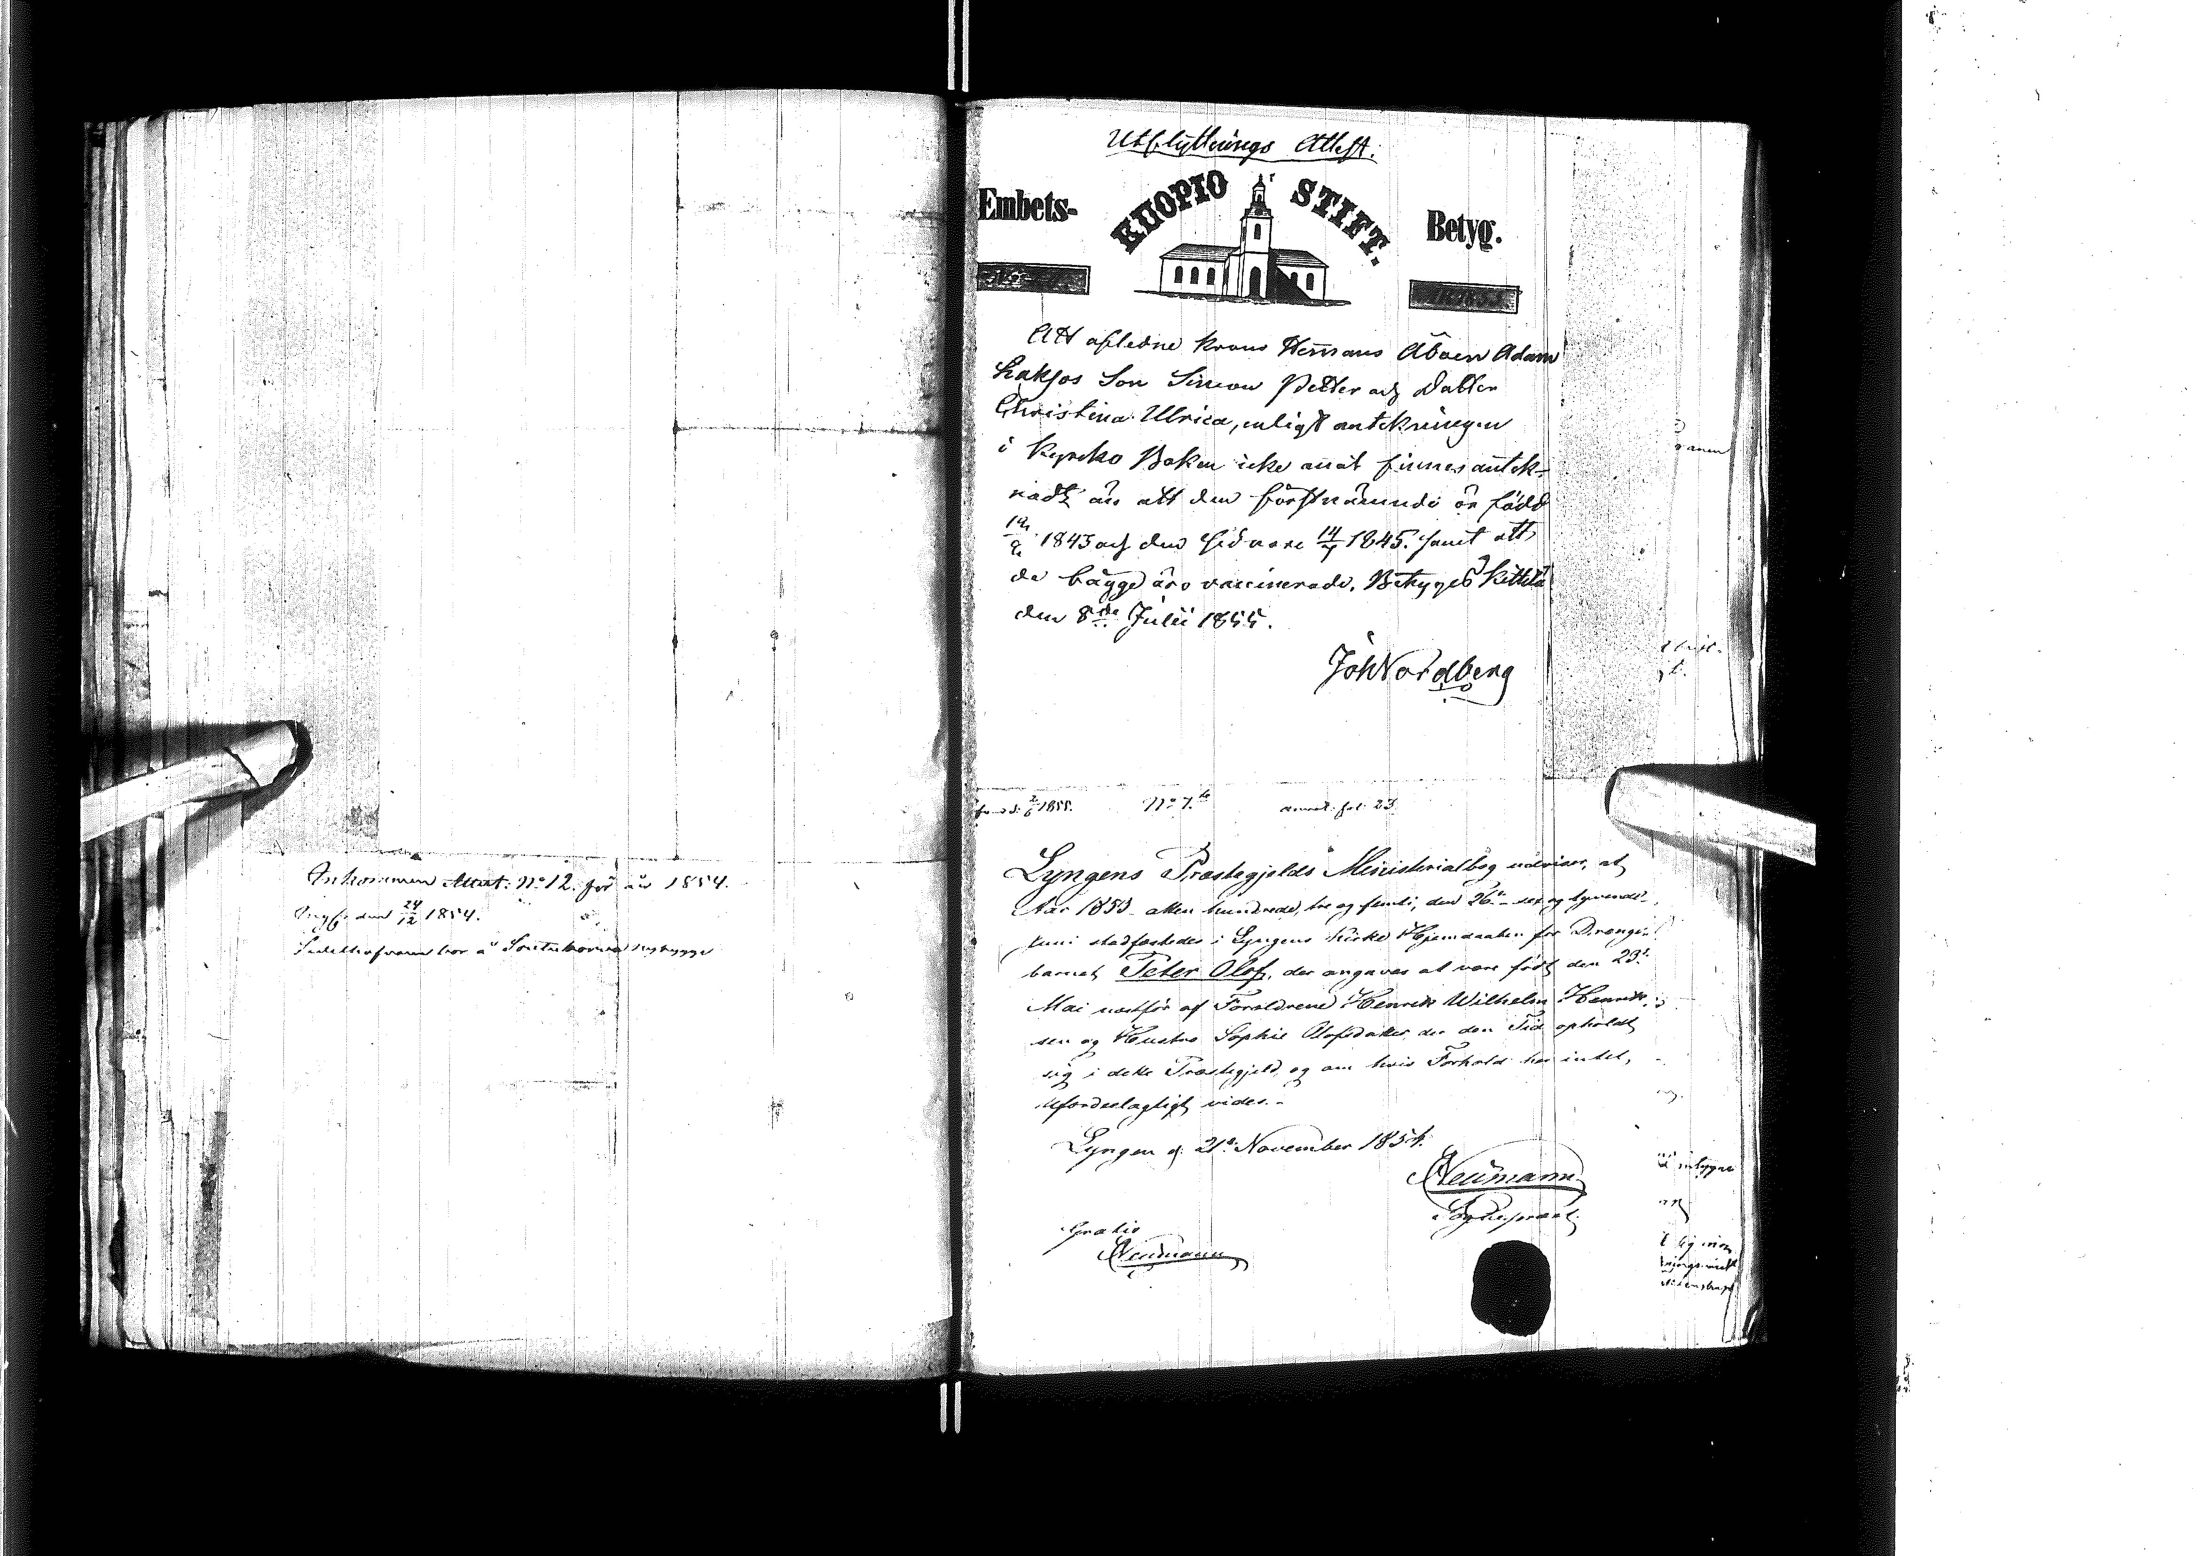 Ankommen Attest: No 12. för år 1854.
den 24/12 1854.
bor å nybygge
Utflyttnings Attest.
Embets-
KUOPIO STIFT.
Betyg.
Att aflidne Krono Hemans Åboen Adam
Laksos Son Simon Petter och Dotter
Christina Ulrica, enligt antekningen
i Kyrcko Boken icke anat finnes antek-
nadt än att den förstnämnde är född
1843 och den sednare 14/4 1845. samt att
de bägge äro vaccinerade. Betyges Kittilä
den 8de Julii 1855.
Joh Nordberg
2/6 1855. No 7. annot. fol. 23
Lyngens Præstegjelds Ministerialbog udviser, at
Aar 1853 atten hundrede, tre og femti, den 26de sex og tyvende
Juni stadfæstedes i Lyngens Kirke Hjemdaaben for Drenge-
barnet Peter Olof, der angaves at være født den 23de
Mai næstfør af Forældrene Henrik Wilhelm Henrik-
sen og Hustro Sophie Olofsdatter, der den Tid opholdt
sig i dette Præstegjeld, og om hvis Forhold her intet
ufordeelagtigt vides.-
Lyngen d. 21de November 1854.
Neumann
Sogneprest
Gratis
Neumann